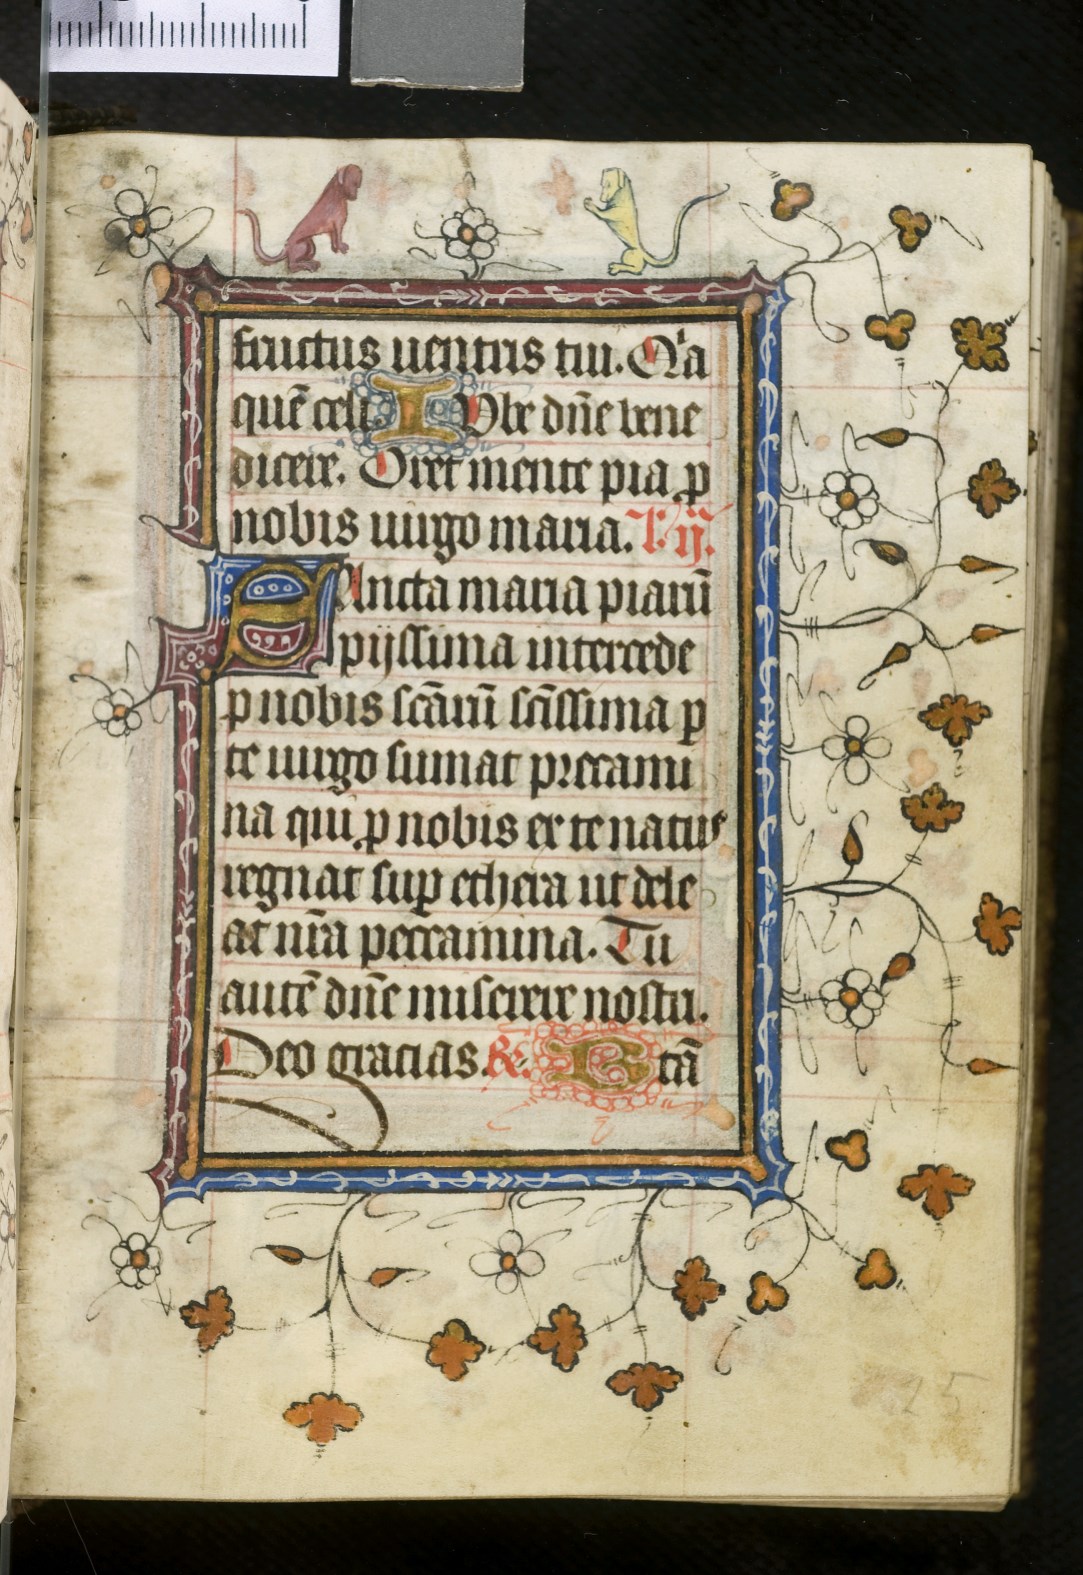 fructus uentris tui. Q'a
quē celi. I Vbe dn̄e bene
dicere. Oret mente pia ꝑ
nobis uirgo maria. l. ij.
SAncta maria piarū
pijssima intercede
ꝑ nobis scārū sc̄issima ꝑ
te uirgo sumat precami
na qui ꝓ nobis ex te natus
regnat sup̱ ethera ut dele
at nr̄a peccamina. Tu
autē dn̄e miserere nostri.
Deo gracias. &c. S cā
25